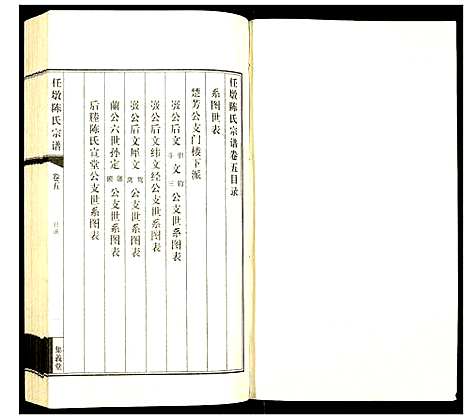 任墩陈氏宗谱卷五目录
系图世表
楚芳公支门楼下派
公后文 文 公支世系图表
公后文纬文经公支世系图表
公后文犀文 公支世系图表
兰公六世孙定 公支世系图表
后塍陈氏宣堂公支世系图表
任墩陈氏宗谱
卷五
目录
集义堂